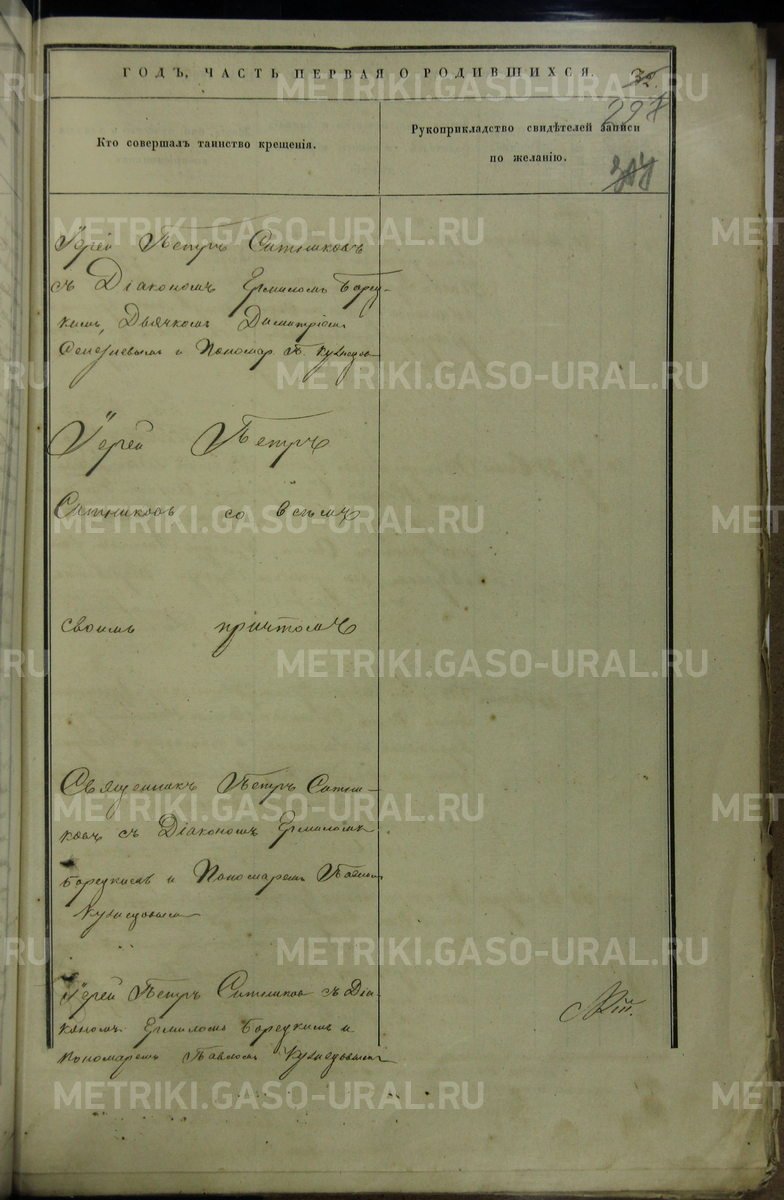 ГОДЪ, ЧАСТЬ ПЕРВАЯ О РОДИВШИХСЯ.
297
Кто совершалъ таинство крещенія.
Рукоприкладство свидѣтелей записи
по желанію.
Іерей Петръ Ситниковъ
съ Діакономъ Ермиломъ Борец-
кимъ, Дьячкомъ Димитріемъ
и Пономар. П. Кузнецов
Іерей Петръ
Ситниковъ со всѣмъ
своимъ причтомъ
Священникъ Петръ Ситни-
ковъ съ Діакономъ Ермиломъ
Борецкимъ и Пономаремъ Павломъ
Кузнецовымъ
Іерей Петръ Ситников съ Діа-
кономъ Ермиломъ Борецкимъ и
Пономаремъ Павломъ Кузнецовымъ
METRIKI.GASO-URAL.RU